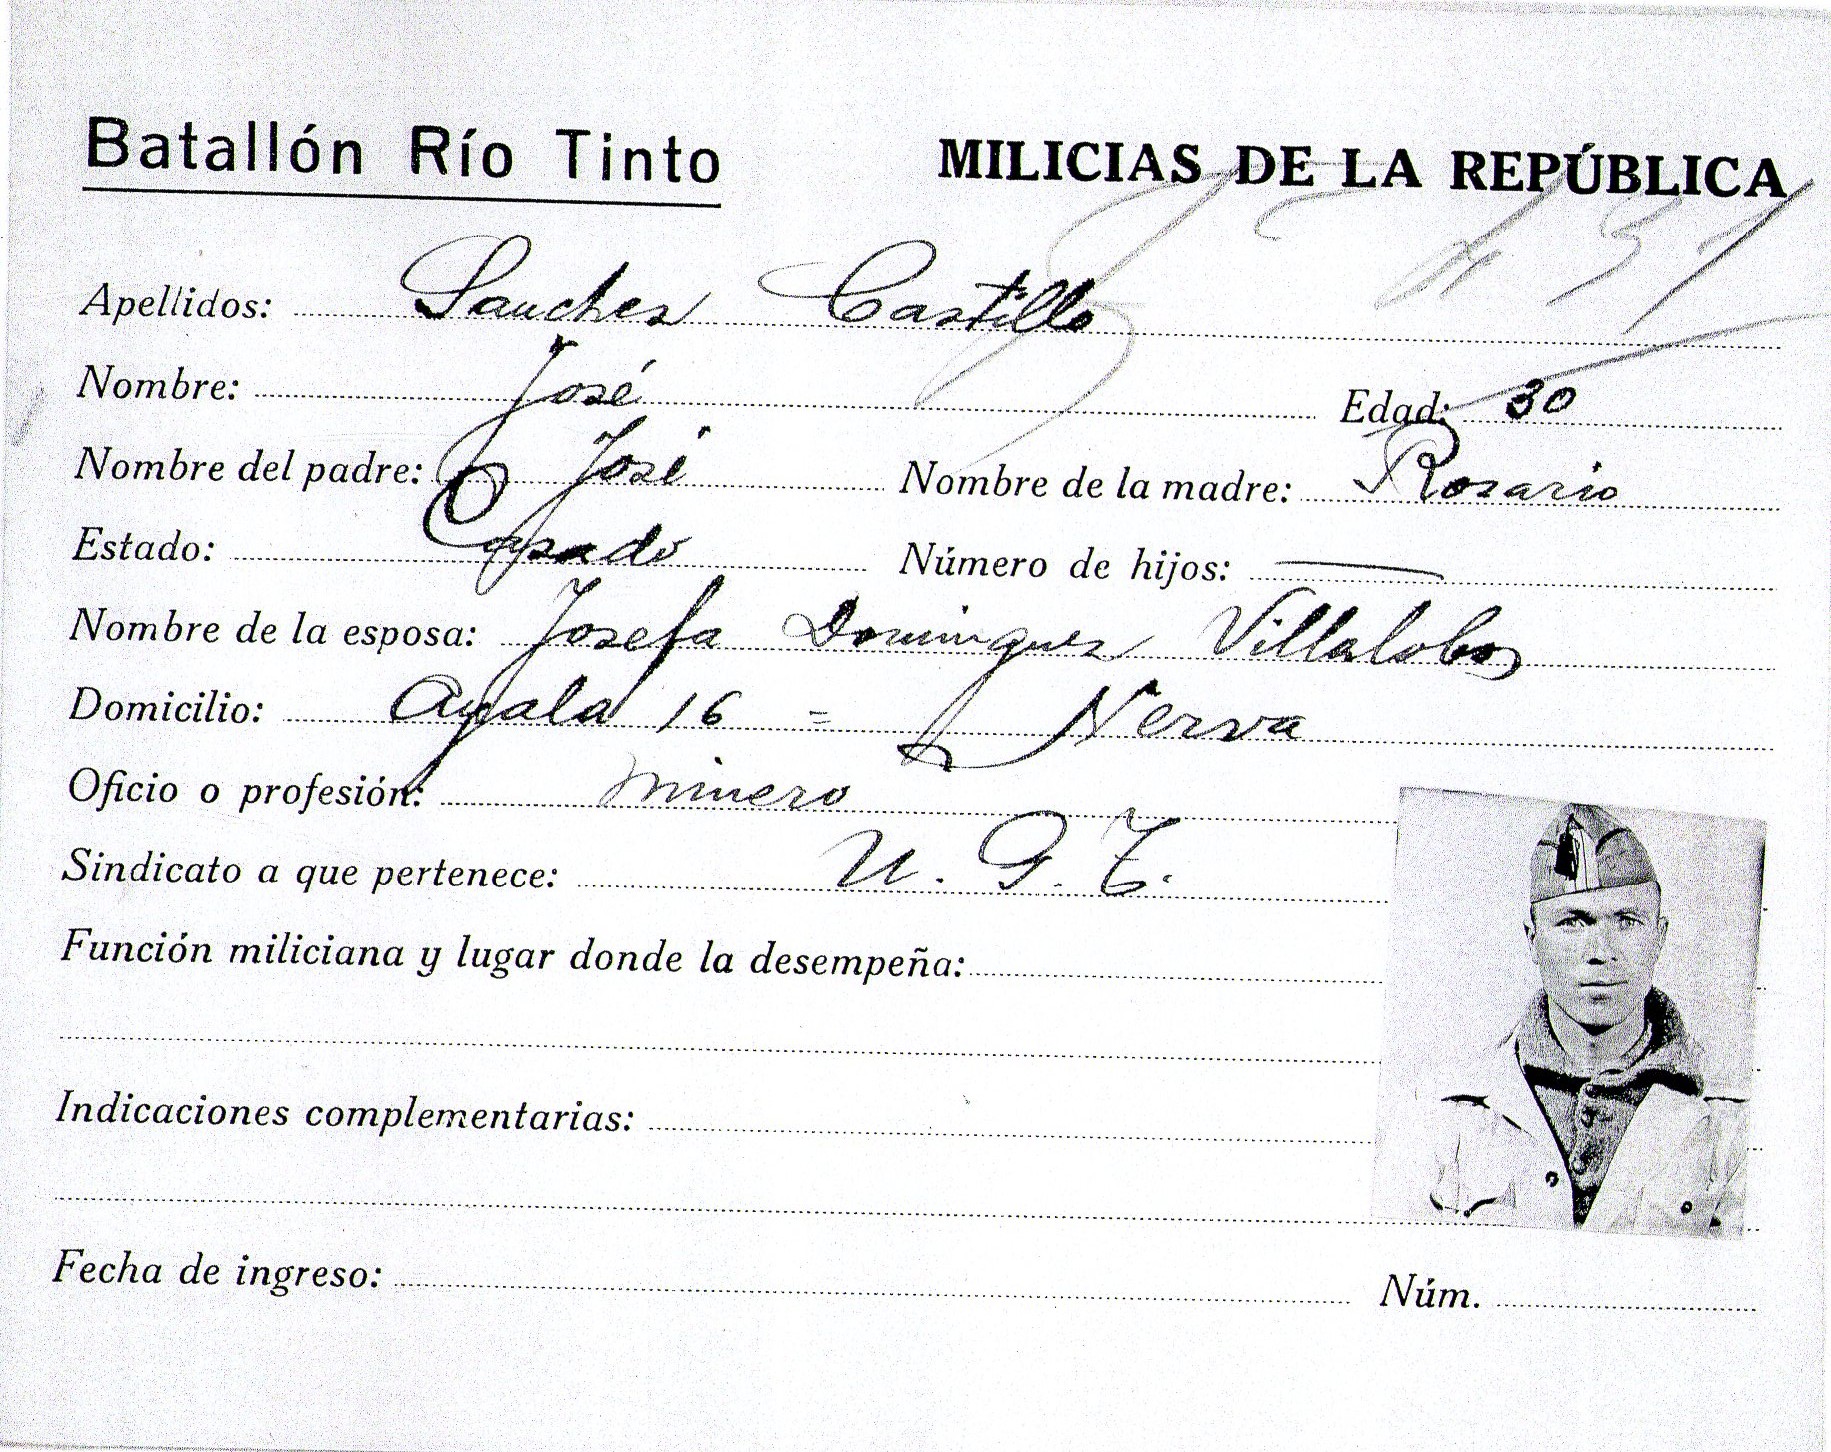 Batallón Río Tinto MILICIAS DE LA REPÚBLICA
Apellidos: Sanches Castillo
Nombre: José Edad: 30
Nombre del padre: José Nombre de la madre: Rosario
Estado: Casado Número de hijos: —
Nombre de la esposa: Josefa Domingues Villalobos
Domicilio: Ayala 16 = Nerva
Oficio o profesión: minero
Sindicato a que pertenece: U. G. T.
Función miliciana y lugar donde la desempeña:
Indicaciones complementarias:
Fecha de ingreso: Núm.